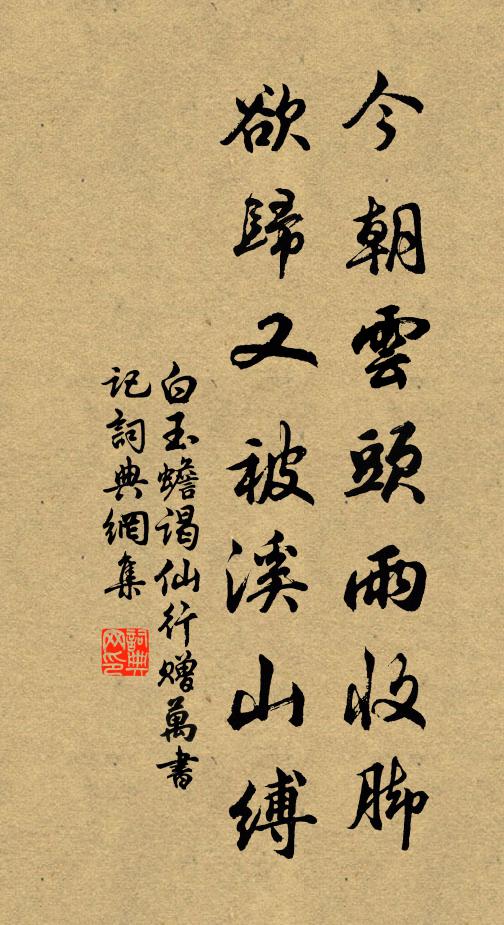 今朝雲頭雨收脚
欲歸又被溪山縛
白玉蟾謁仙行贈萬書
記詞典網集
詞典
网印